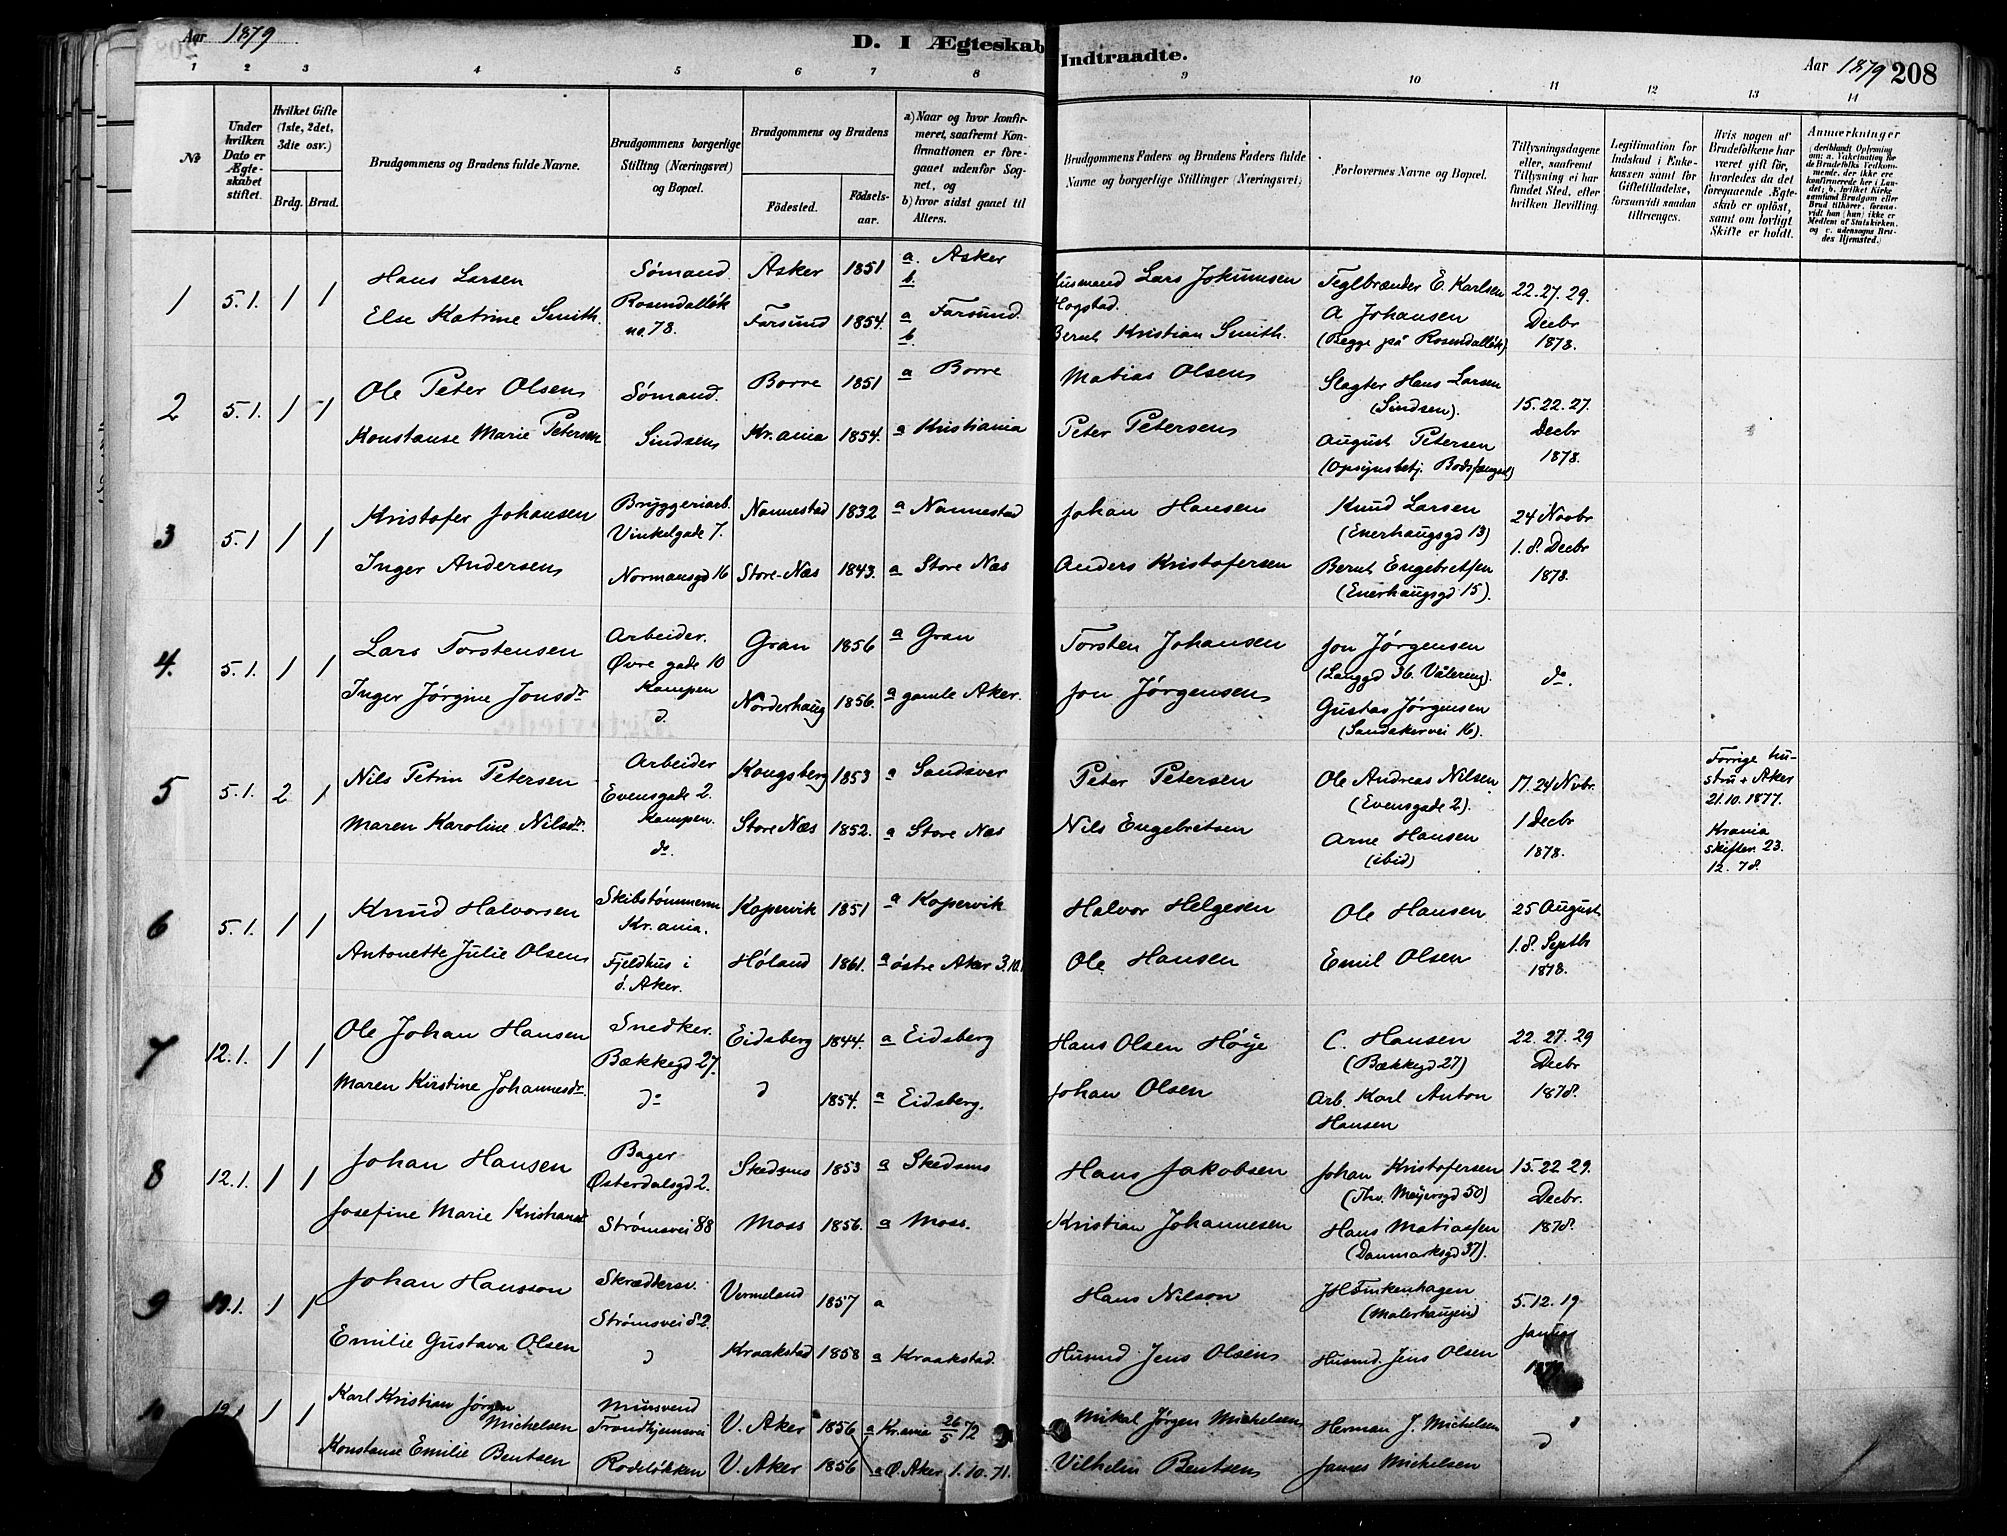 Aar 1879
D. I Ægteskab Indtraadte.
Aar 1879 208
1 2 3 4 5 6 7 8 9 10 11 12 13 14
№
Under hvilken Dato er Ægteskabet stiftet.
Hvilket Gifte (1ste, 2det, 3die osv.)
Brdg. Brud.
Brudgommens og Brudens fulde Navne.
Brudgommens borgerlige Stilling (Næringsvei) og Bopæl.
Brudgommens og Brudens
Fødested. Fødsels-aar.
a) Naar og hvor konfirmeret, saafremt Konfirmationen er foregaaet udenfor Sognet, og
b) hvor sidst gaaet til Alters.
Brudgommens Faders og Brudens Faders fulde Navne og borgerlige Stillinger (Næringsvei)
Forlovernes Navne og Bopæl.
Tillysningsdagene eller, saafremt Tillysning ei har fundet Sted, efter hvilken Bevilling.
Legitimation for Indskud i Enkekassen samt for Giftetilladelse, forsaavidt saadan tiltrænges.
Hvis nogen af Brudefolkene har været gift før, hvorledes da det foregaaende Ægteskab er opløst, samt om lovligt Skifte er holdt.
Anmærkninger (deriblandt Oplysning om: a. Vakcination for de Brudefolks Vedkommende, der ikke ere konfirmerede her i Landet; b. hvilket Kirkesamfund Brudgom eller Brud tilhører, forsaavidt han (hun) ikke er Medlem af Statskirken, og c. udensogns Brudes Hjemsted.)
1 5.1. 1 1 Hans Larsen Sømand. Asker 1851 a. Asker b. Husmand Lars Jokumsen Hogstad. Teglbrænder E. Karlsen 22. 27. 29.
Else Katrine Smith. Rosendalløk no 78. Farsund 1854. a Farsund. b. Bernt Kristian Smith. A Johansen (Begge på Rosendalløk) Decbr 1878.
2 5.1. 1 1 Ole Peter Olsen Sømand. Borre 1851 a Borre Matias Olsen Slagter Hans Larsen (Sindsen). 15. 22. 27.
Konstanse Marie Petersen Sindsen Kr.ania 1854. a Kristiania Peter Petersen August Petersen (Opsynsbetj. Bodsfængsel) Decbr 1878.
3 5.1 1 1 Kristofer Johansen Bryggeriarb. Vinkelgade 7. Nannestad 1832 a Nannestad Johan Hansen Knud Larsen (Enerhaugsgd 13) 24 Novbr
Inger Andersen Normansgd 16 Store-Næs 1843. a Store Næs Anders Kristofersen Bernt Engebretsen (Enerhaugsgd 15). 1. 8. Decbr 1878.
4. 5.1. 1 1 Lars Torstensen Arbeider. Øvre gade 10 Kampen Gran 1856 a Gran Torsten Johansen Jon Jørgensen (Langgd 36. Vålereng).
Inger Jørgine Jonsdr d. Norderhaug 1856. a gamle Aker. Jon Jørgensen Gustav Jørgensen (Sandakervei 16). do.
5 5.1. 2 1 Nils Petrin Petersen Arbeider Evensgade 2. Kampen. Kongsberg 1853 a Sandsver Peter Petersen Ole Andreas Nilsen (Evensgade 2). 17. 24 Nvbr. Forrige hustru + Aker 21.10.1877.
Maren Karoline Nilsdr. do. Store Næs 1852. a Store Næs Nils Engebretsen Arne Hansen (ibid) 1 Decbr 1878. Krania skifter. 23. 12. 78.
6 5.1. 1 1 Knud Halvorsen Skibstømmerm Kr.ania. Kopervik 1851 a Kopervik Halvor Helgesen Ole Hansen 25 August
Antonette Julie Olsen Fjeldhus i ø. Aker. Høland 1861. a østre Aker 3.10. Ole Hansen Emil Olsen 1. 8. Septb 1878.
7 12.1. 1 1 Ole Johan Hansen Snedker. Bækkegd 27. Eidsberg 1844. a Eidsberg Hans Olsen Höye C. Hansen (Bækkegd 27) 22. 27. 29
Maren Kirstine Johannesdr. do d 1854. a Eidsberg. Johan Olsen Arb. Karl Anton Hansen Decbr 1878.
8 12.1. 1 1 Johan Hansen Bager Østerdalsgd 2. Skedsmo 1853 a Skedsmo Hans Jakobsen Johan Kristofersen (Thv. Meyersgd 50) 15. 22 29.
Josefine Marie Kristiansd Strømsvei 88 Moss 1856. a Moss. Kristian Johannesen Hans Matiassen (Danmarksgd 37). Decbr. 1878.
9 1 1 Johan Hansson Skrædersv. Strømsvei 82. Vermeland 1857 a Hans Nilson (Malerhaugen) 5. 12. 19
Emilie Gustava Olsen d Kraakstad 1858 a Kraakstad. Husmd Jens Olsen Husmd. Jens Olsen
1 1 Karl Kristian Jørgen Michelsen Trondhjemsvei V. Aker 1856 a Kr.ania 26/5 72 Mikal Jørgen Michelsen Herman J. Michelsen
Konstanse Emilie Bentsen Rodeløkken V. Aker 1856 a Ø. Aker 1.10.71. Vilhelm Bentsen James Michelsen d